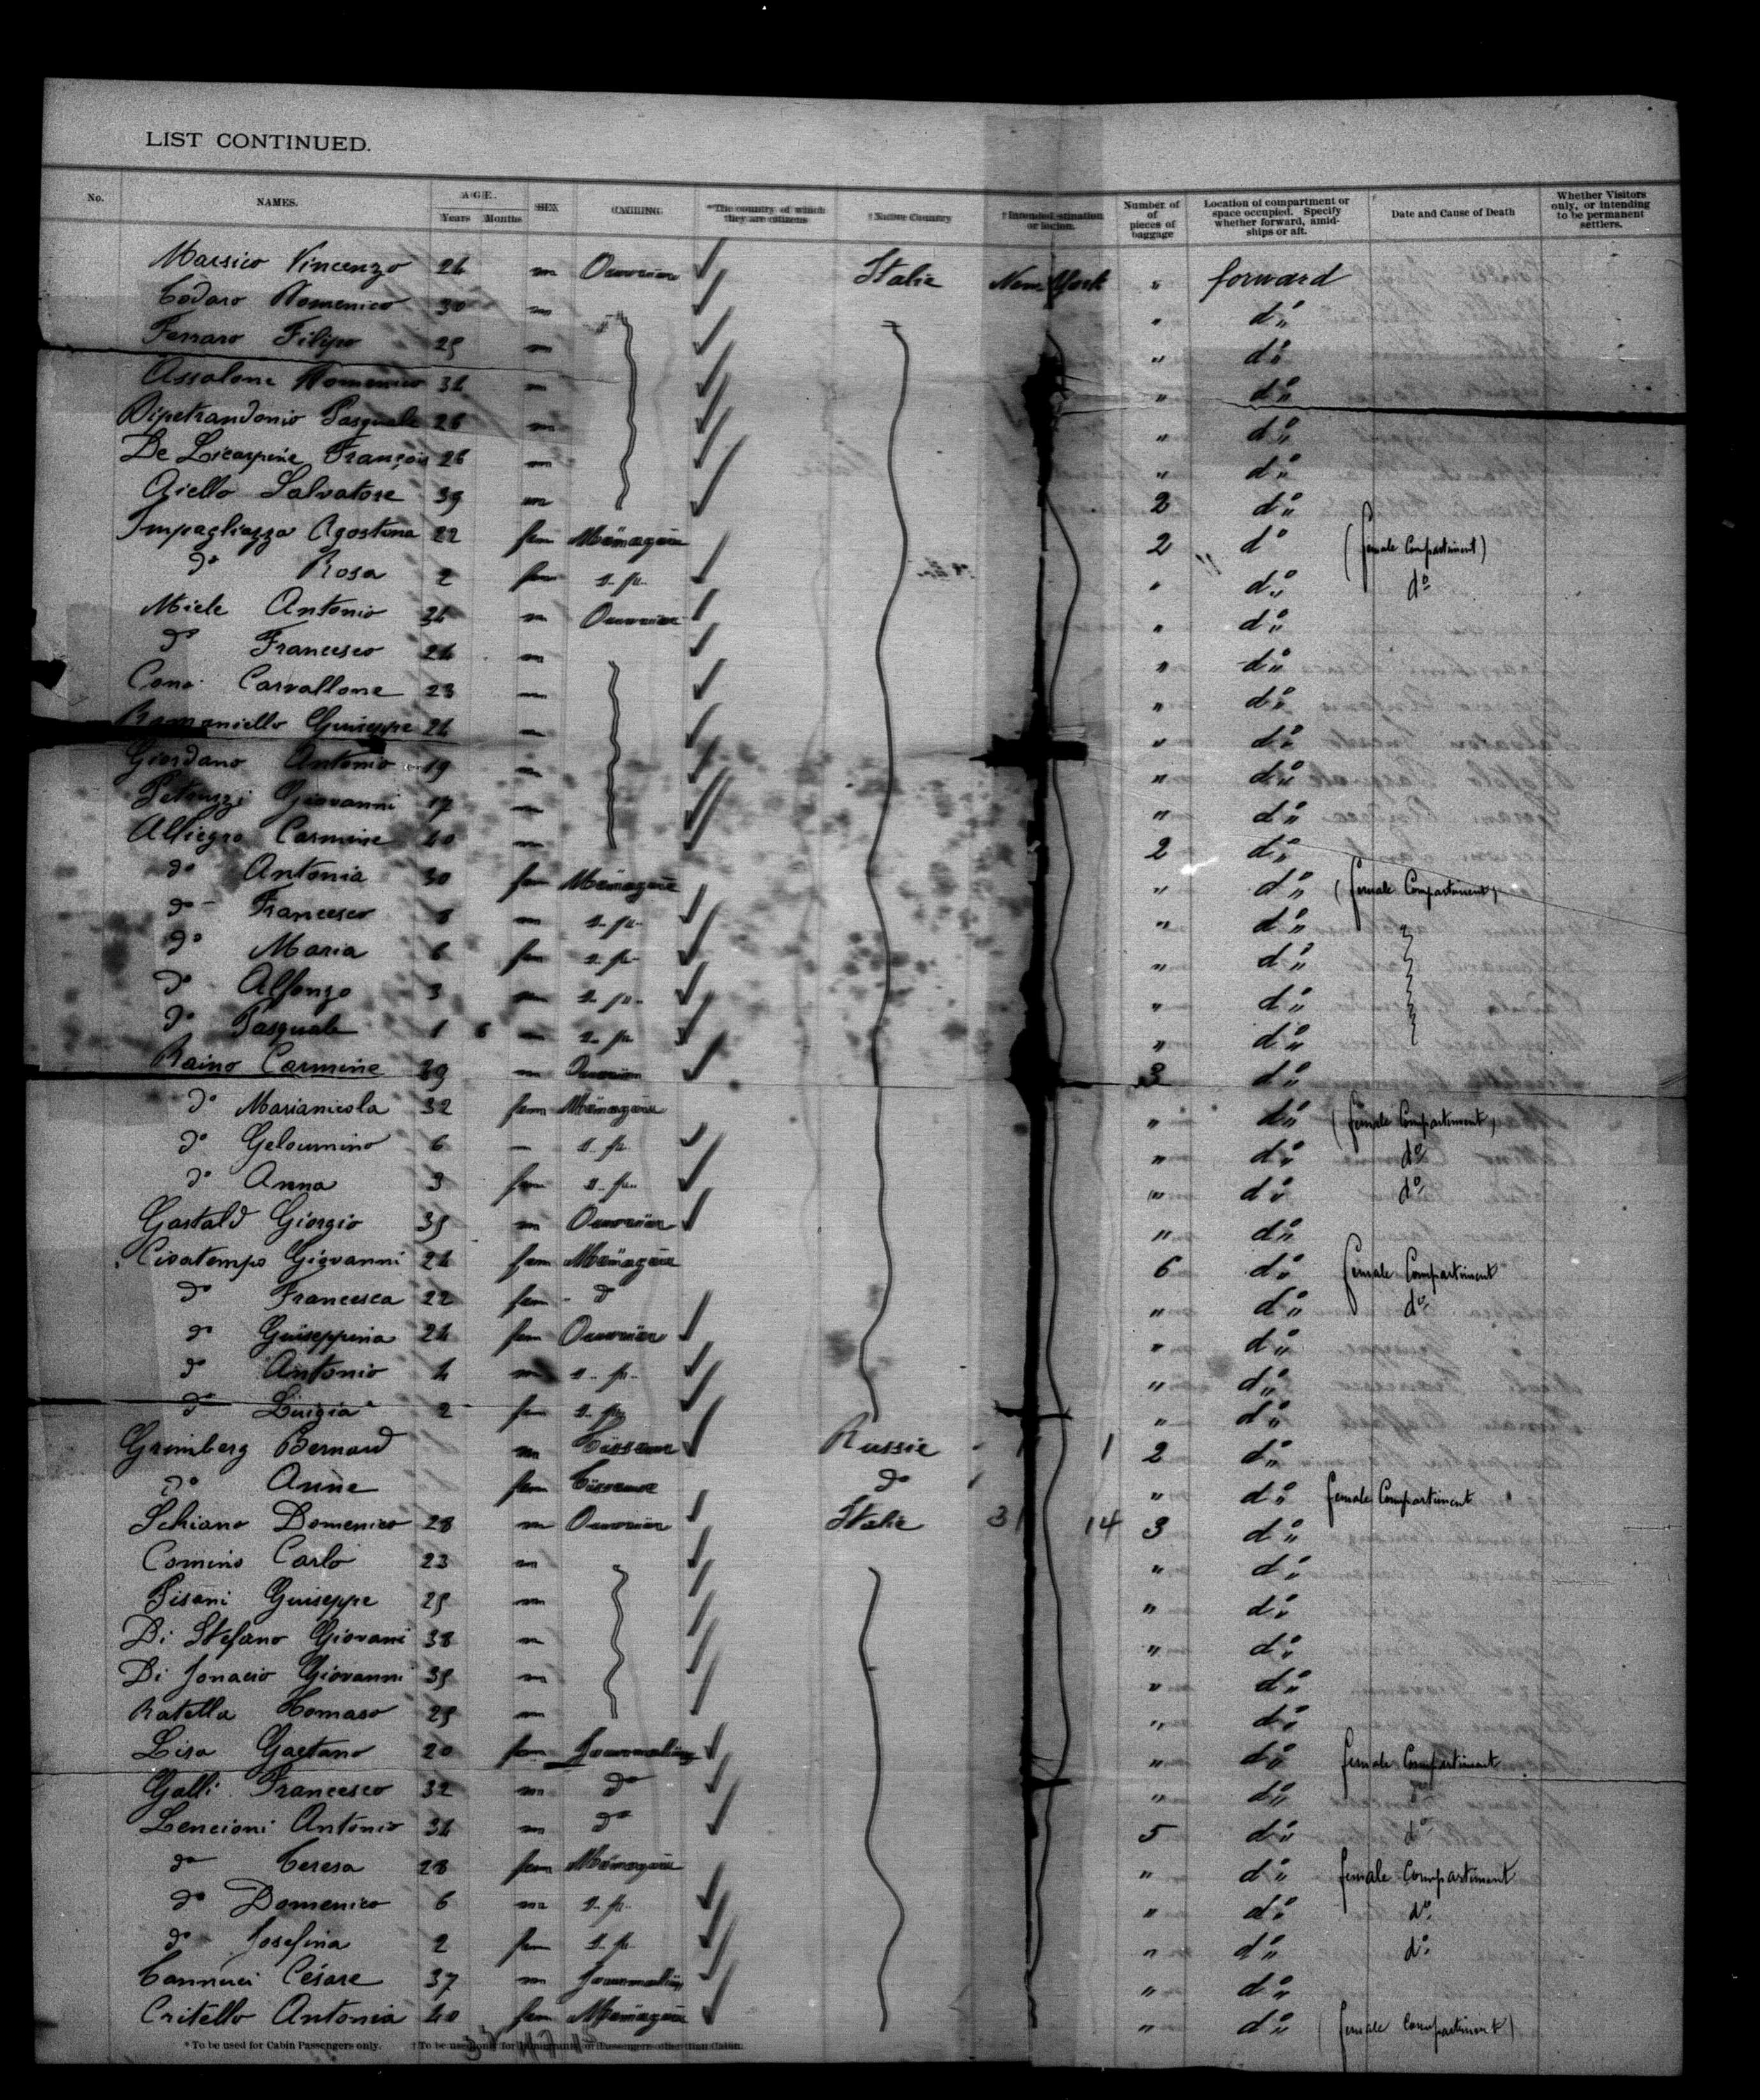 LIST CONTINUED.
No. NAMES. AGE. Years Months SEX CALLING *The country of which they are citizens †Native Country Number of pieces of baggage Location of compartment or space occupied. Specify whether forward, amidships or aft. Date and Cause of Death Whether Visitors only, or intending to be permanent settlers.
Marsico Vincenzo 24 m Ouvrier Italie New York " forward
Codaro Domenico 30 m " do "
Ferraro Filipo 25 m " do "
Assalone Domenico 34 m " do "
Dipetrandonio Pasquale 26 m " do "
De François 26 m " do "
Aiello Salvatore 39 m 2 do "
Impagliazza Agostina 22 fem Ménagère 2 do (female Compartiment)
do Rosa 2 fem s. pr. " do " do
Miele Antonio 34 m Ouvrier " do "
do Francesco 24 m " do "
Cono Carvallone 23 m " do "
Romaniello Guiseppe 24 m " do "
Giordano Antonio 19 m " do "
Petruzzi Giovanni 17 m " do "
Alliegro Carmine 40 m 2 do "
do Antonia 30 fem Ménagère " do " (female Compartiment)
do Francesco 8 m s. pr. " do "
do Maria 6 fem s. pr. " do "
do Alfonzo 3 m s. pr. " do "
do Pasquale 1 6 m s. pr. " do "
Raino Carmine 39 m Ouvrier 3 do "
do Marianicola 32 fem Ménagère " do " (female Compartiment)
do Geloumino 6 s. pr. " do " do
do Anna 3 fem s. pr. " do " do
Gastald Giorgio 35 m Ouvrier " do "
Civatempo Giovanni 24 fem Ménagère 6 do " female Compartiment
do Francesca 22 fem do " do " do
do Guiseppina 24 fem Ouvrier " do "
do Antonio 4 m s. pr. " do "
do Luigia 2 fem s. pr. " do "
Grimberg Bernard m Russie 1 2 do "
do Anne fem do " do " female Compartiment
Schiano Domenico 28 m Ouvrier Italie 3 14 3 do "
Comino Carlo 23 m " do "
Pisani Guiseppe 25 m " do "
Di Stefano Giovani 38 m " do "
Di Jonacio Giovanni 35 m " do "
Ratella Tomaso 25 m " do "
Lisa Gaetano 20 fem Journalier " do " female Compartiment
Galli Francesco 32 m do " do " do
Lencioni Antonio 34 m do 5 do " do
do Teresa 28 fem Ménagère " do " female Compartiment
do Domenico 6 m s. pr. " do " do
do Josefina 2 fem s. pr. " do " do
Cannuci Césare 37 m Journalier " do "
Critello Antonia 40 fem Ménagère " do " (female Compartiment)
*To be used for Cabin Passengers only.